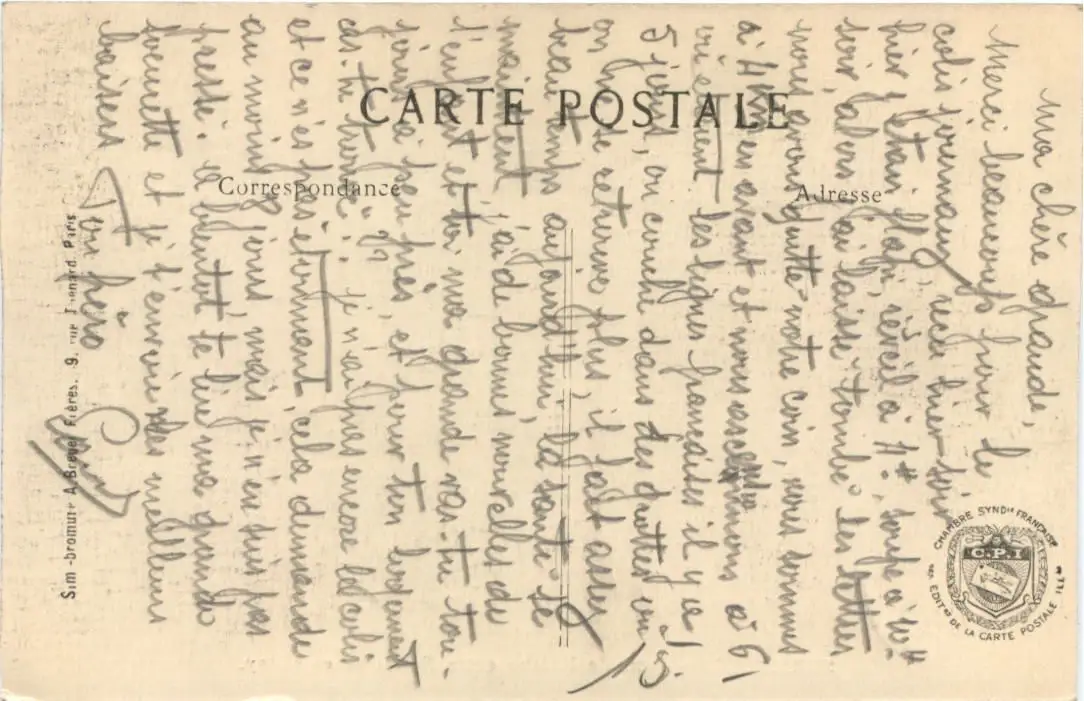 CARTE POSTALE
Correspondance
Adresse
CHAMBRE SYND^le FRANÇAISE
C.P.I
DE LA CARTE POSTALE ILL^ée
Ma chère grande,
Merci beaucoup pour le
colis reçu hier soir
hier j'étais réveil à 4^h, soupe à 10^h
soir, alors j'ai laissé tomber les lettres
nous avons quitté notre coin, nous sommes
à 4 Km en avant et nous à 6
où étaient les lignes françaises il y a
5 jours, on couche dans des grottes où
on se retrouve plus, il fait assez
beau temps aujourd'hui, la santé se
maintient j'ai de bonnes nouvelles de
l'enfant et toi ma grande vas-tu tou-
jours à peu près, et pour ton logement
as-tu je n'ai pas encore le colis
et ce n'est pas étonnant, cela demande
au moins 8 jours, mais je n'en suis pas
pressé. à bientôt te lire ma grande
et je t'envoie mes meilleurs
baisers Ton frère
Sim-bromure A. Breger Frères, 9, rue Thénard, Paris